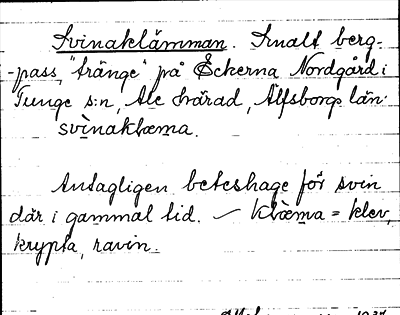 Svinaklämman. Smalt berg-
-pass, "trånge" på Åckerna Nordgård i
Tunge s:n, Ale härad, Älfsborgs län.
svìnaklæma.
Antagligen beteshage för svin
där i gammal tid. – Klæ̀ma = klev,
krypta, ravin.